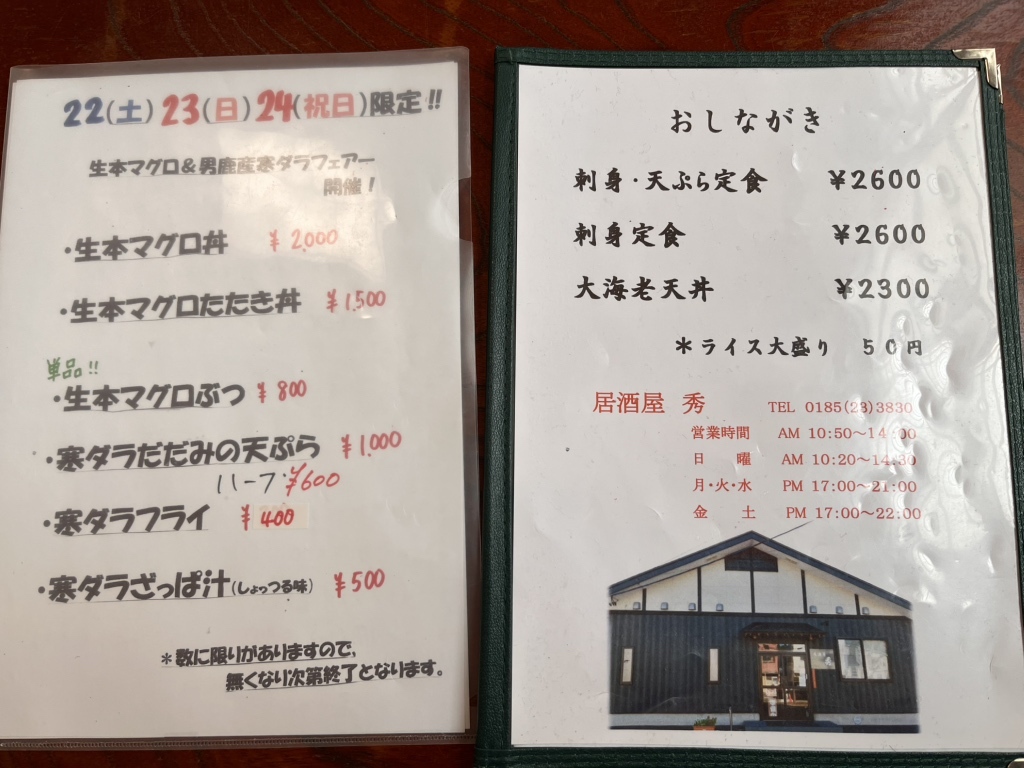 22(土) 23(日) 24(祝日)限定!!
生本マグロ&男鹿産寒ダラフェアー
開催!
・生本マグロ丼 ¥2,000
・生本マグロたたき丼 ¥1,500
単品!!
・生本マグロぶつ ¥800
・寒ダラだだみの天ぷら ¥1,000
ハーフ ¥600
・寒ダラフライ ¥400
・寒ダラざっぱ汁(しょっつる味) ¥500
*数に限りがありますので、
無くなり次第終了となります。
おしながき
刺身・天ぷら定食 ¥2600
刺身定食 ¥2600
大海老天丼 ¥2300
*ライス大盛り 50円
居酒屋 秀 TEL 0185(23)3830
営業時間 AM 10:50~14:00
日 曜 AM 10:20~14:30
月・火・水 PM 17:00~21:00
金 土 PM 17:00~22:00